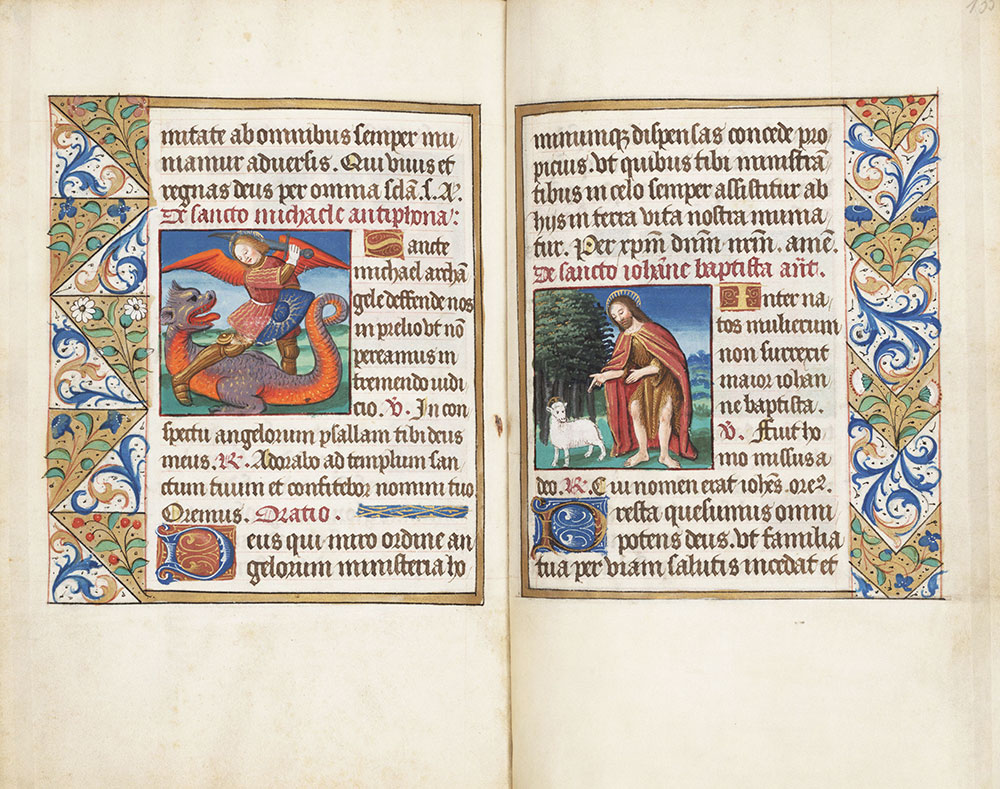 nitate ab omnibus semper mu
niamur adversis. Qui vivis et
regnas deus per omnia sclā. s. A.
De sancto michaele antiphona:
Sancte
michael archā
gele deffende nos
in prelio ut nō
pereamus in
tremendo iudi
cio. V. In con
spectu angelorum psallam tibi deus
meus. R. Adorabo ad templum san
ctum tuum et confitebor nomini tuo
Oremus. Oratio.
Deus qui miro ordine an
gelorum ministeria ho
133
minumqz dispensas concede pro
picius. ut quibus tibi ministrā
tibus in celo semper assistitur ab
hiis in terra vita nostra munia
tur. Per xpm̄ dnm̄ nrm̄. amē.
De sancto iohāne baptista añt.
Inter na
tos mulierum
non surrexit
maior iohan
ne baptista.
V. Fuit ho
mo missus a
deo. R. Cui nomen erat iohēs. ore2.
Presta quesumus omni
potens deus. ut familia
tua per viam salutis incedat et